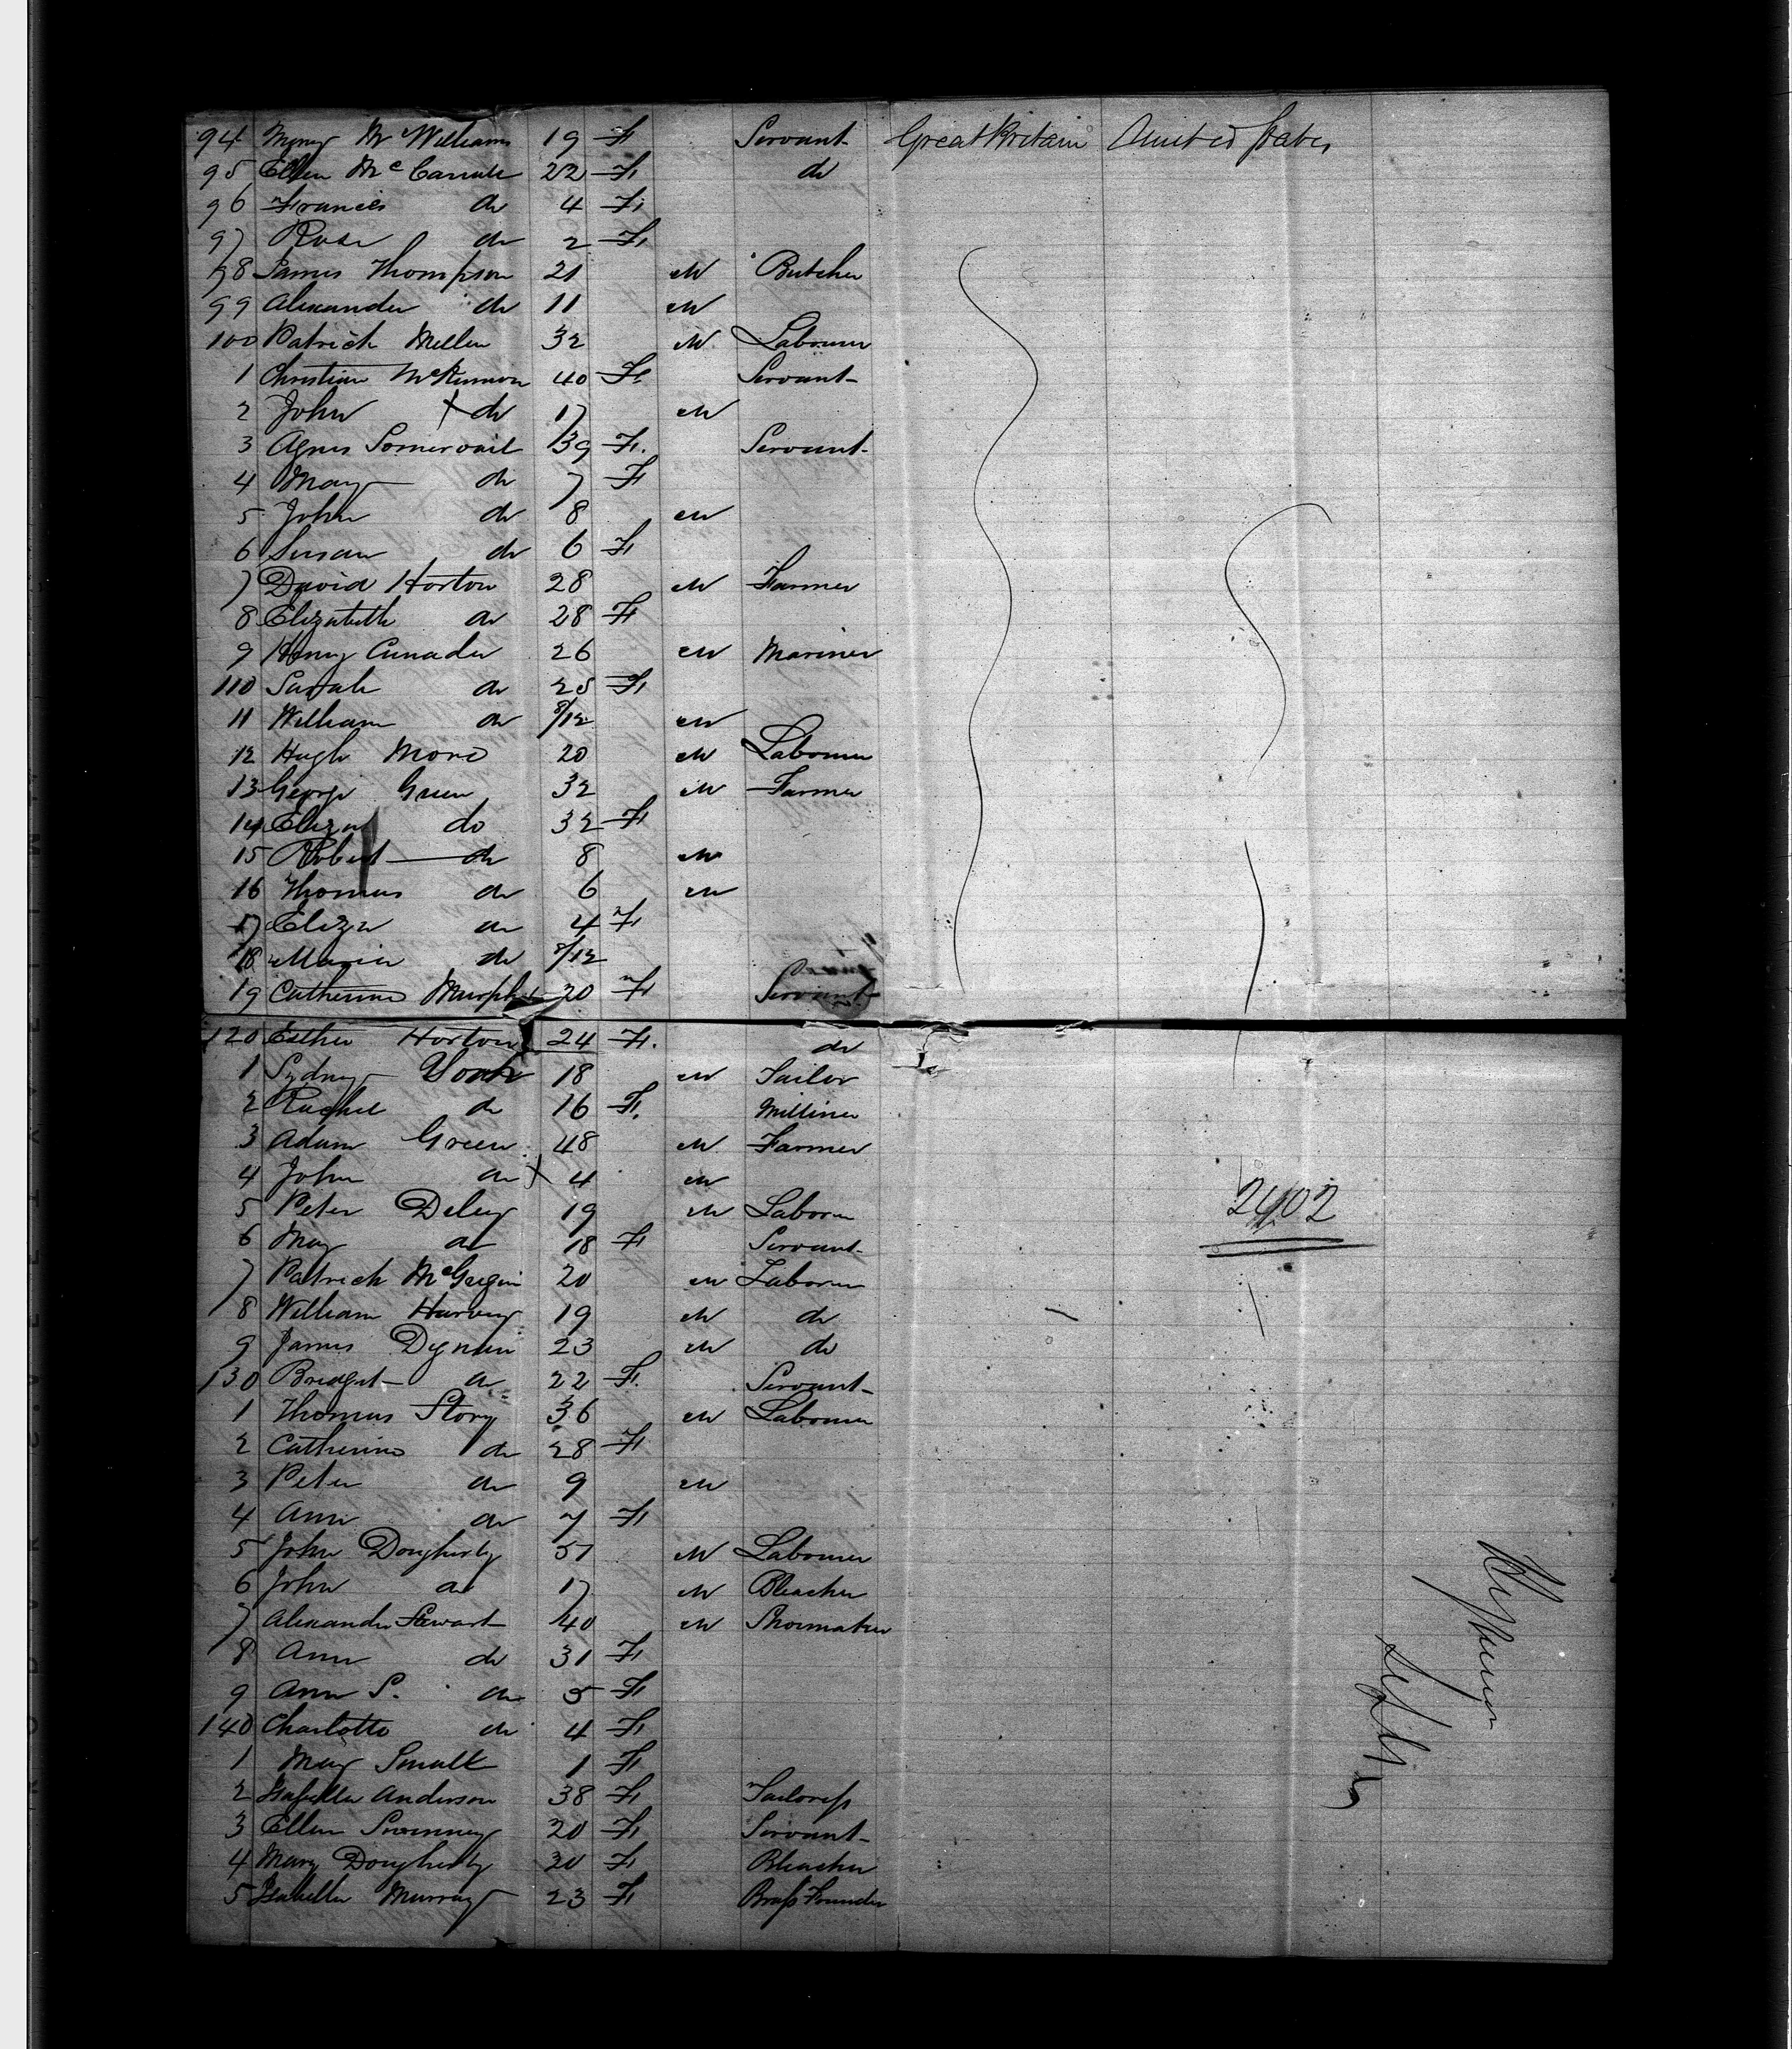 94 Mary McWilliams 19 F Servant Great Britain United States
95 Ellen McCarrole 22 F do
96 Francis do 4 F
97 Rose do 2 F
98 James Thompson 21 M Butcher
99 Alexander do 11 M
100 Patrick Mellen 32 M Labourer
1 Christian McKinnon 40 F Servant
2 John do 17 M
3 Agnes Somervail 39 F Servant
4 Mary do 7 F
5 John do 8 M
6 Susan do 6 F
7 David Horton 28 M Farmer
8 Elizabeth do 28 F
9 Henry Cunader 26 M Mariner
110 Sarah do 25 F
11 William do 8/12 M
12 Hugh More 20 M Labourer
13 George Green 32 M Farmer
14 Eliza do 32 F
15 Robert do 8 M
16 Thomas do 6 M
17 Eliza do 4 F
18 Maria do 8/12
19 Catherine Murphy 20 F Servant
120 Esther Horton 24 F do
1 Sydney 18 M Tailor
2 Rachel do 16 F Milliner
3 Adam Green 48 M Farmer
4 John do 4 M
5 Peter Deley 19 M Laborer
6 May do 18 F Servant
7 Patrick 20 M Laborer
8 William Harvey 19 M do
9 James Dignan 23 M do
130 Bridget do 22 F Servant
1 Thomas Story 36 M Labourer
2 Catherine do 28 F
3 Peter do 9 M
4 Ann do 7 F
5 John Dougherty 51 M Labourer
6 John do 17 M Bleacher
7 Alexander Stewart 40 M Shoemaker
8 Ann do 31 F
9 Ann S. do 5 F
140 Charlotte do 4 F
1 May Small 1 F
2 Isabella Anderson 38 F Tailoress
3 Ellen Sweeney 20 F Servant
4 Mary Dougherty 30 F Bleacher
5 Isabella Murray 23 F Brass Founder
2402